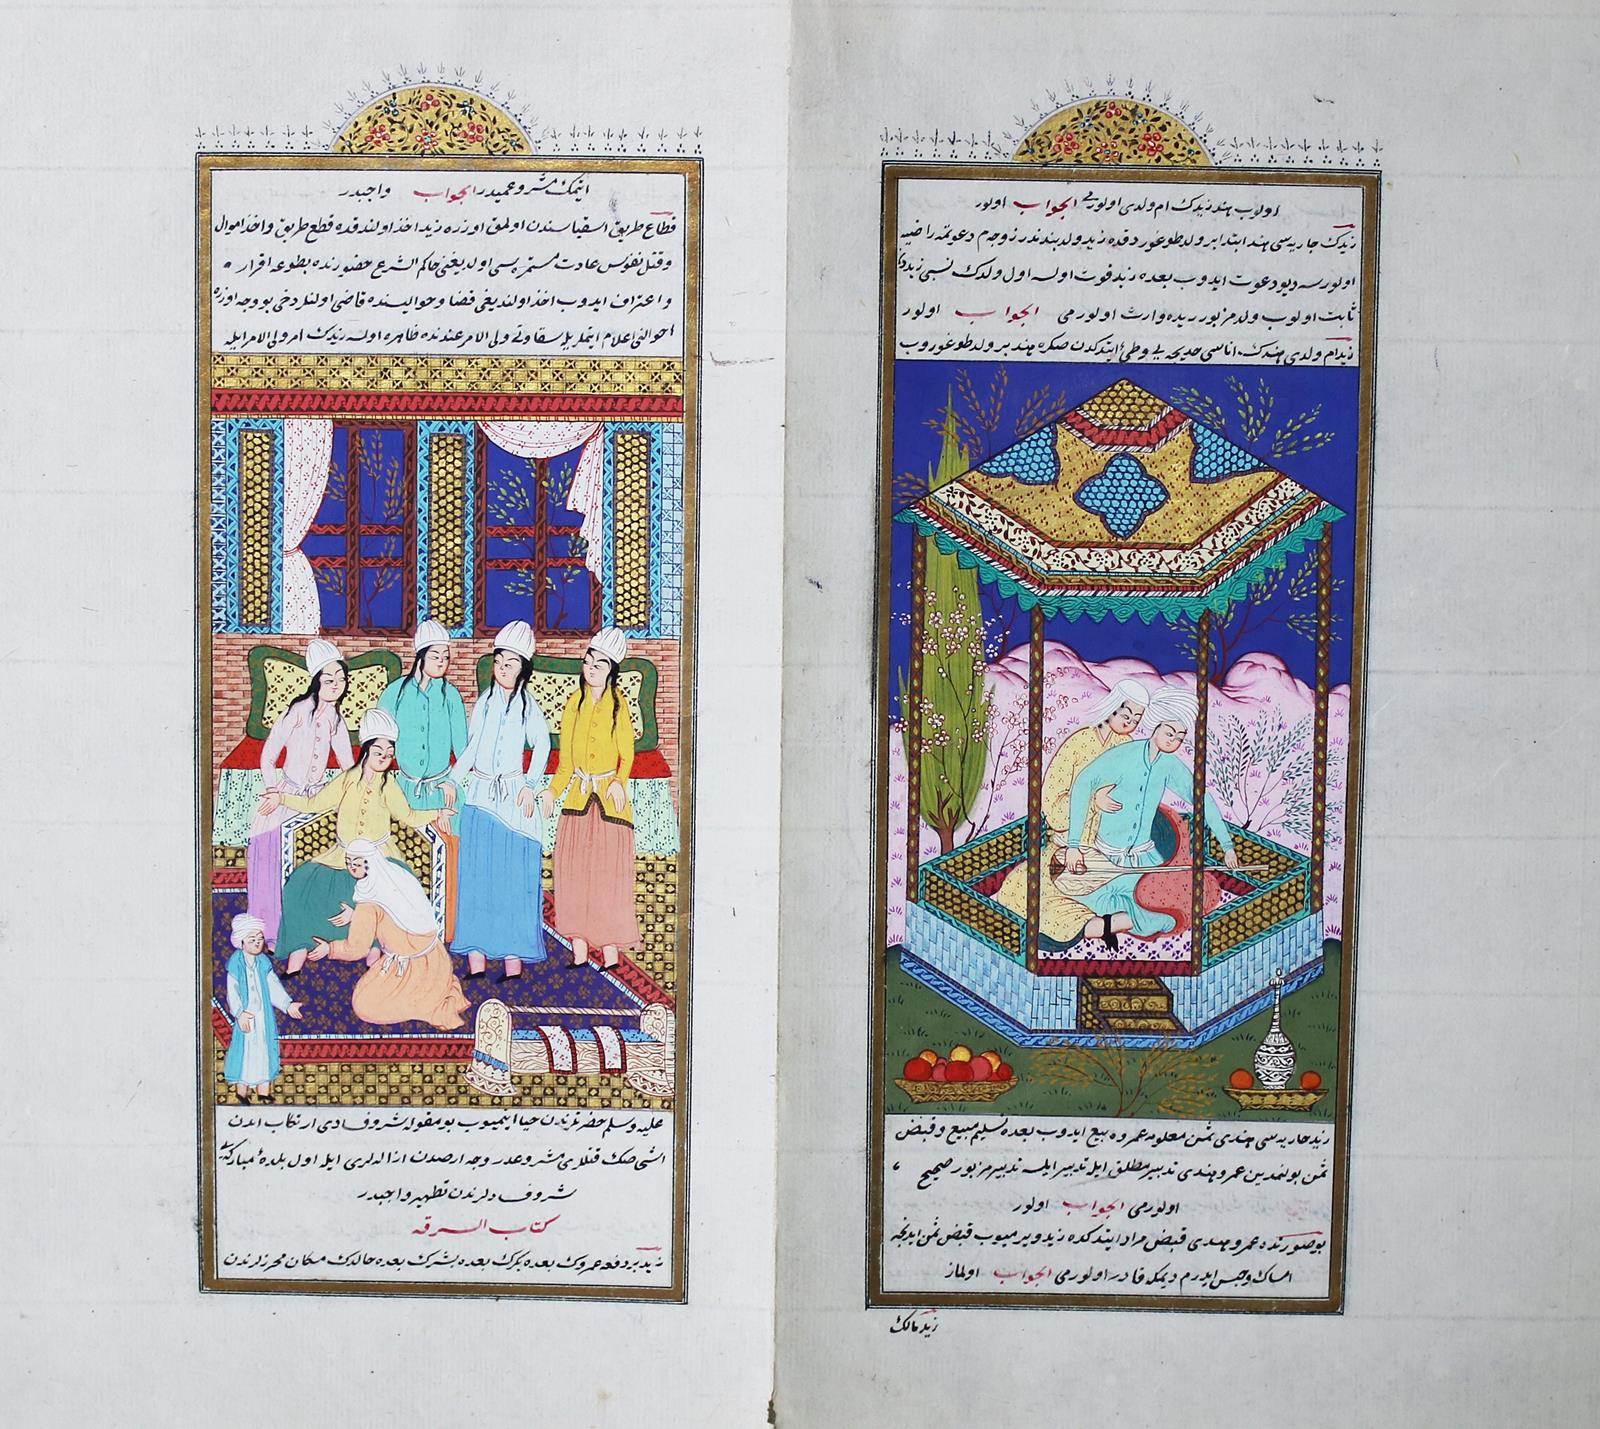 اولوب هند زیدك ام ولدی اولورمی الجواب اولور
زیدك جاریه‌سی هند ابتدا بر ولد طوغوردقده زید ولد بندندر زوجم دعوتمه راضیه
اولورسه دیو دعوت ایدوب بعده زید فوت اولسه اول ولدك نسبی زیددن
ثابت اولوب ولد مزبور زیده وارث اولورمی الجواب اولور
زید ام ولدی هندك اناسی خدیجه یی وطئ ایتدكدن صكره هند بر ولد طوغوروب
زید جاریه‌سی هندی ثمن معلومه عمروه بیع ایدوب بعده تسلیم مبیع و قبض
ثمن بولنمدین عمرو هندی تدبیر مطلق ایله تدبیر ایلسه تدبیر مزبور صحیح
اولورمی الجواب اولور
بو صورتده عمرو هندی قبض مراد ایتدكده زید ویرمیوب قبض ثمن ایدنجه
امساك و حبس ایدرم دیمكه قادر اولورمی الجواب اولماز
زید مالك
ایتمك مشروعمیدر الجواب واجبدر
قطاع طریق اشقیاسندن اولمق اوزره زید اخذ اولندقده قطع طریق و اخذ اموال
و قتل نفوس عادت مستمره‌سی اولدیغنی حاكم الشرع حضورنده بطوعه اقرار
و اعتراف ایدوب اخذ اولندیغی قضا و حوالیسنده قاضی اولنلر دخی بو وجه اوزره
احوالنی اعلام ایتملریله شقاوتی ولی الامر عندنده ظاهره اولسه زیدك امر ولی الامر ایله
علیه وسلم حضرتلرندن حیا ایتمیوب بو مقوله شر و فسادی ارتكاب ایدن
اشی صك قتللری مشروعدر وجه ارضدن ازاله‌لری ایله اول بلدهٔ مباركه
شر و فسادلرندن تطهیر واجبدر
كتاب السرقه
زید بر دفعه عمروك بعده بكرك بعده بشرك بعده خالدك مكان محرزلرندن